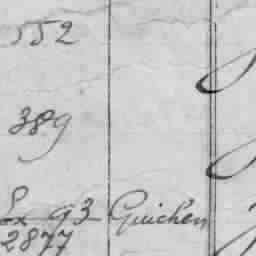 552
389
93 Guichen
2877